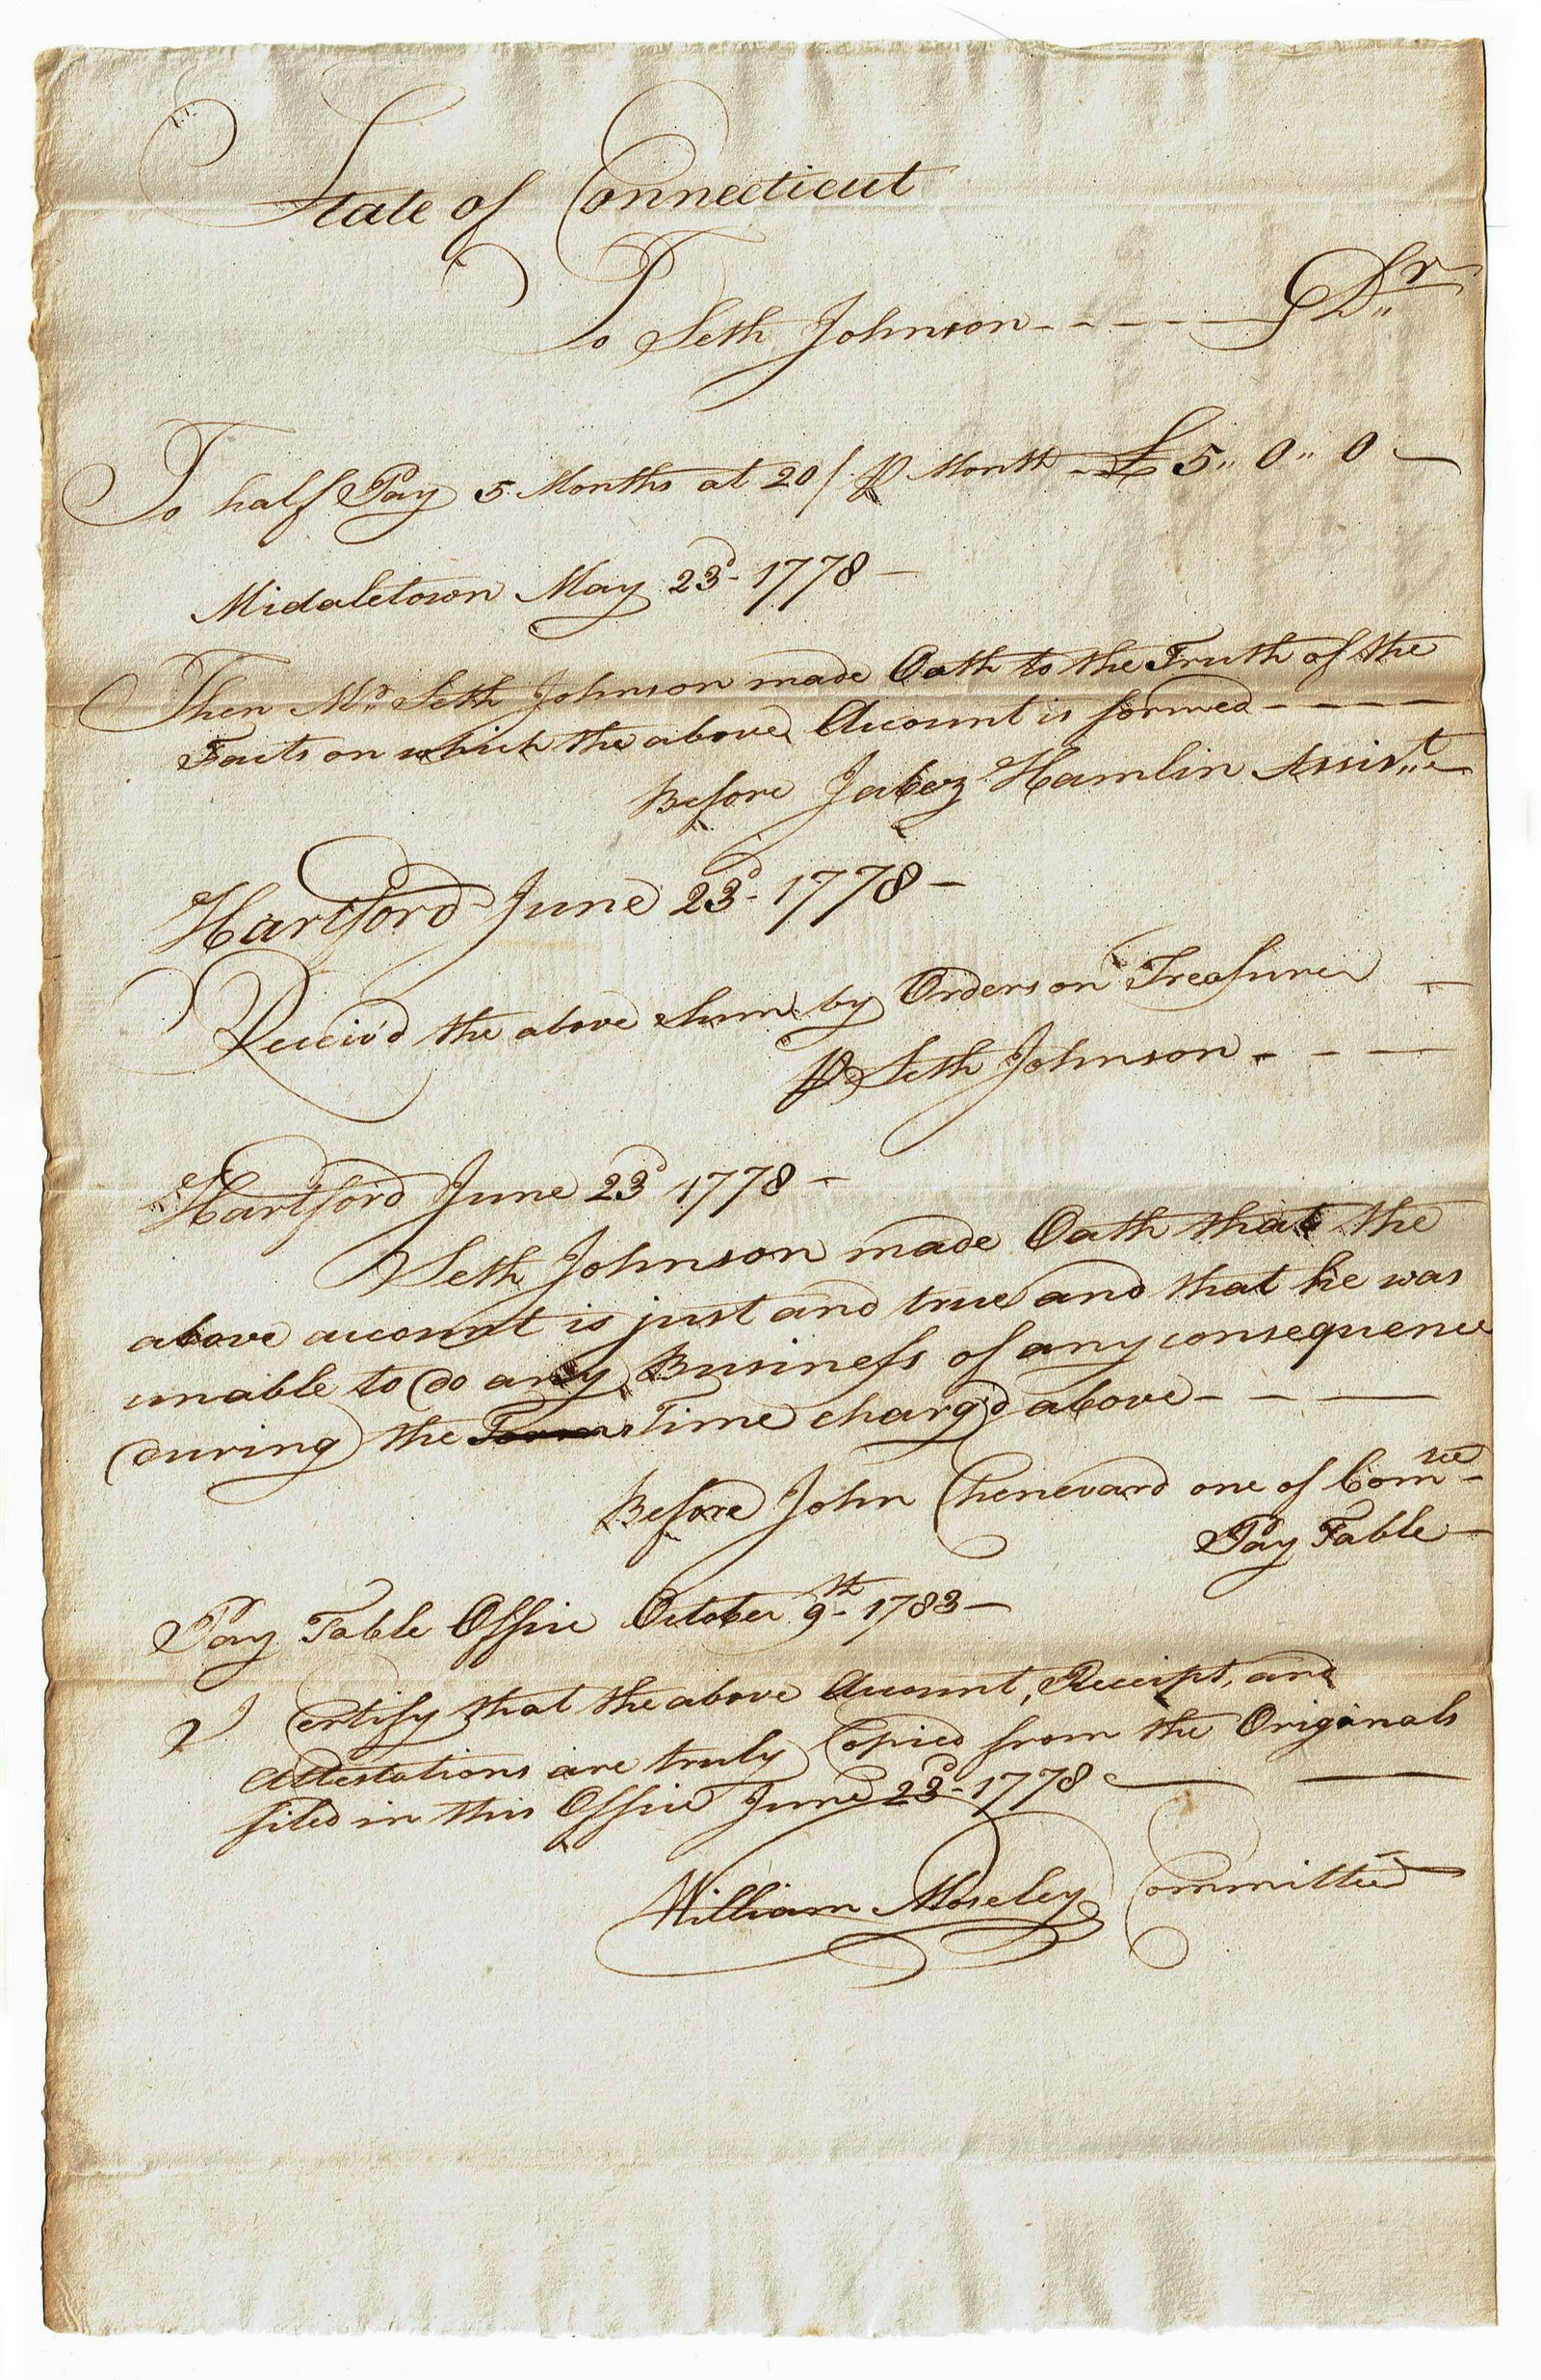 State of Connecticut
To Seth Johnson - - - - - Dr
To half Pay 5 Months at 20/ ⅌ Month - £ 5 " 0 " 0
Middletown May 23d 1778 -
Then Mr Seth Johnson made Oath to the Truth of the
Facts on which the above Account is formed - - - -
Before Jabez Hamlin Assist
Hartford June 23d 1778 -
Receiv'd the above Sum by Orders on Treasurer -
⅌ Seth Johnson - - -
Hartford June 23d 1778 -
Seth Johnson made Oath that the
above account is just and true and that he was
unable to do any Business of any consequence
during the Time charg'd above - - -
Before John Chenevard one of Comtee
Pay Table -
Pay Table Office October 9th 1783 -
I Certify that the above Account, Receipt, and
Attestations are truly Copied from the Originals
filed in this Office June 23d 1778
William Moseley Committee